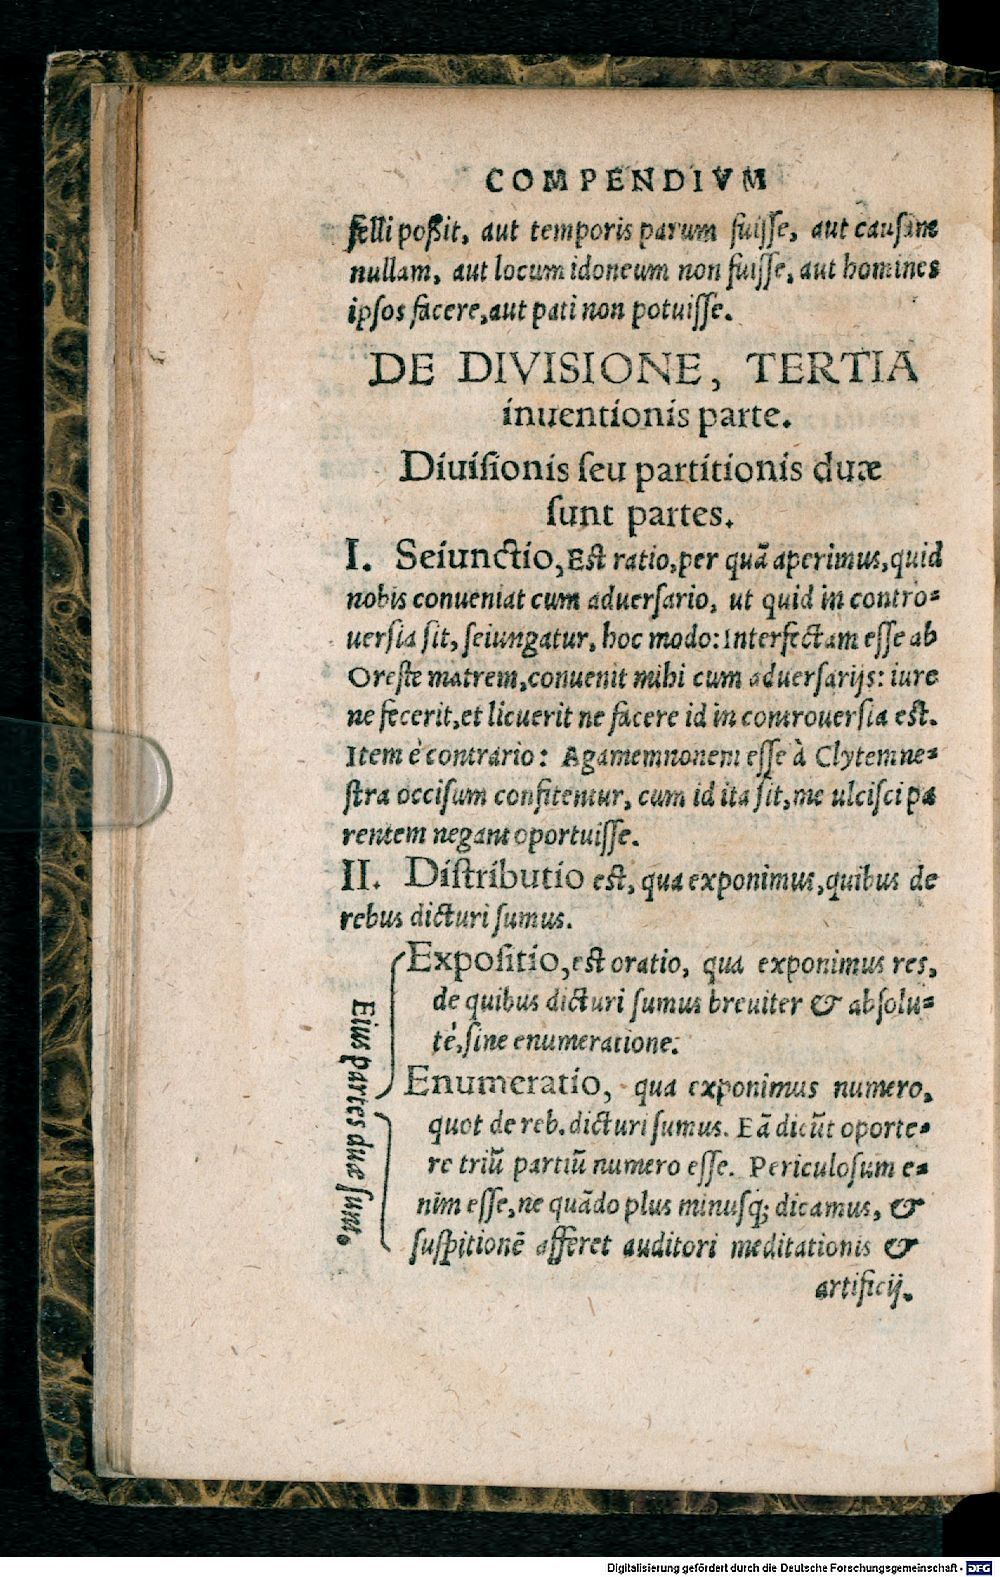 COMPENDIVM
felli poßit, aut temporis parum fuiſſe, aut cauſam
nullam, aut locum idoneum non fuiſſe, aut homines
ipſos facere, aut pati non potuiſſe.
DE DIVISIONE, TERTIA
inuentionis parte.
Diuiſionis ſeu partitionis duæ
ſunt partes.
I. Seiunctio, Eſt ratio, per quã aperimus, quid
nobis conueniat cum aduerſario, ut quid in contro⸗
uerſia ſit, ſeiungatur, hoc modo: Interfectam eſſe ab
Oreſte matrem, conuenit mihi cum aduerſarijs: iure
ne fecerit, et licuerit ne facere id in controuerſia eſt.
Item è contrario: Agamemnonem eſſe à Clytemne⸗
ſtra occiſum confitemur, cum id ita ſit, me ulciſci pa
rentem negant oportuiſſe.
II. Diſtributio eſt, qua exponimus, quibus de
rebus dicturi ſumus.
Eius partes duæ ſunt.
Expoſitio, eſt oratio, qua exponimus res,
de quibus dicturi ſumus breuiter & abſolu⸗
tè, ſine enumeratione.
Enumeratio, qua exponimus numero,
quot de reb. dicturi ſumus. Eã dicũt oporte⸗
re triũ partiũ numero eſſe. Periculoſum e⸗
nim eſſe, ne quãdo plus minuſq; dicamus, &
ſuſpitionẽ afferet auditori meditationis &
artificij.
Digitalisierung gefördert durch die Deutsche Forschungsgemeinschaft - DFG